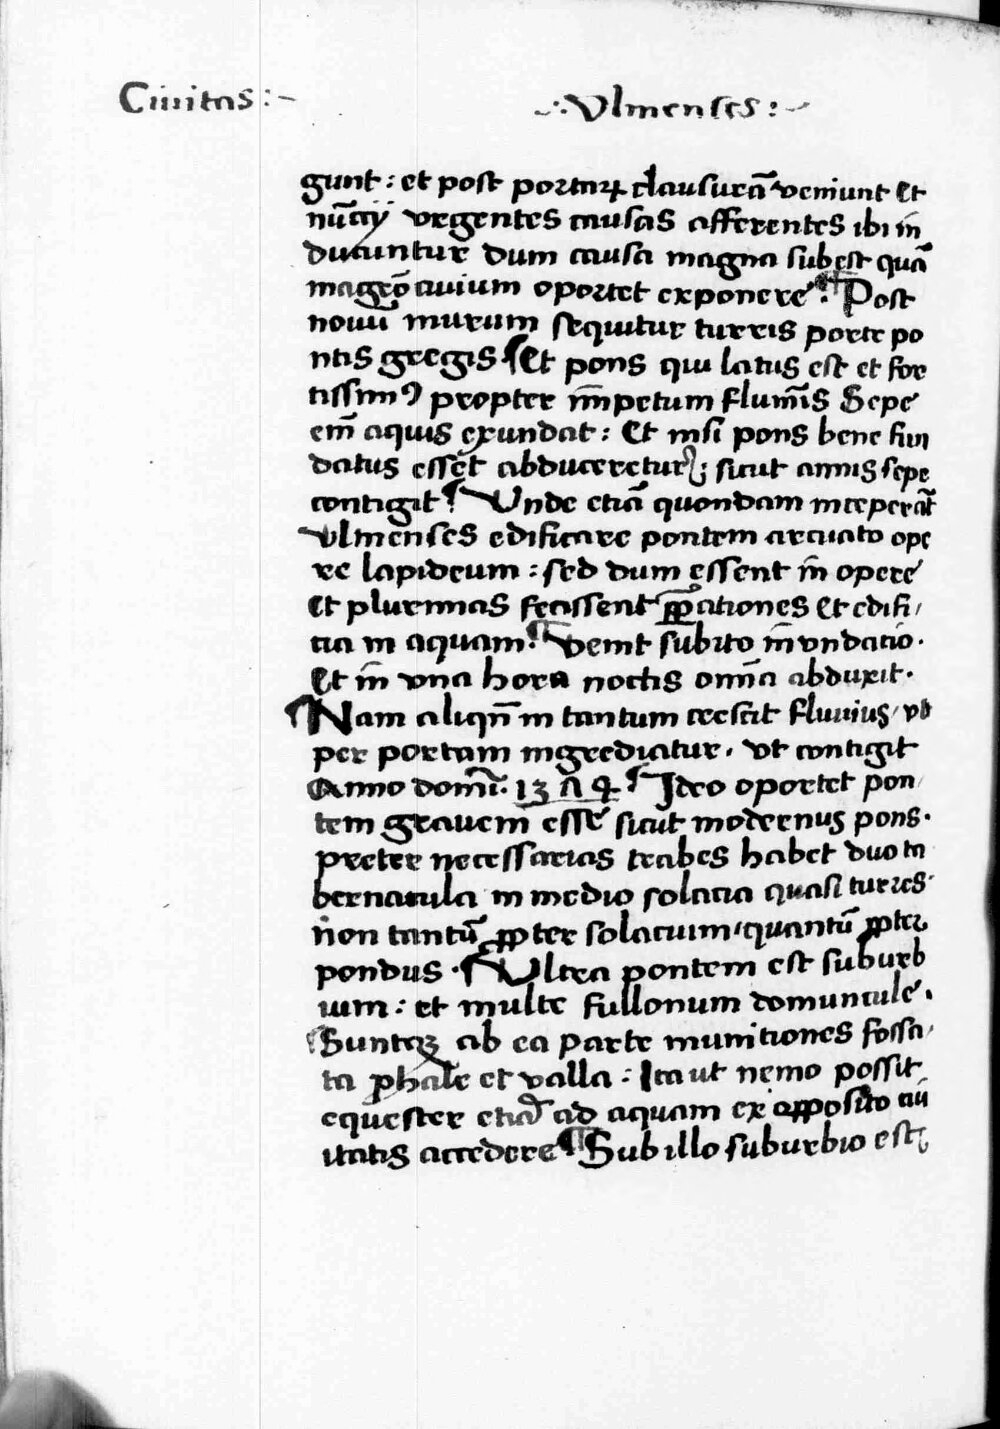 Ciuitas:~
~:Vlmenses:~
gunt: et post portaꝝ clausurā veniunt et
nūcij vrgentes causas afferentes ibi in̄
ducuntur dum causa magna subest quā
magr̄o ciuium oportet exponere. ¶ Post
nouū murum sequitur turris porte po
ntis gregis ¶ Et pons qui latus est et for
tissimꝰ propter im̄petum flumīs Sepe
em̄ aquis exundat: Et nisi pons bene fun
datus esset abduceretur; sicut annis sepe
contigit ¶ Vnde etiā quondam inceperāt
Vlmenses edificare pontem arcuato ope
re lapideum: sed dum essent in̄ opere
et plurimas fecissent p̄pationes et edifi/
cia in aquam. ¶ Venit subito in̄vndatio.
Et in̄ vna hora noctis om̄ia abduxit.
¶ Nam aliqn̄ in tantum crescit fluuius/ vt
per portam ingrediatur. vt contigit
Anno domī. 13ꓥ4 ¶ Ideo oportet pon/
tem grauem esse sicut modernus pons.
preter necessarias trabes habet duo ta
bernacula in medio solacia quasi turres
non tantū ꝓpter solacium/ quantū ꝓpter
pondus. ¶ Vltra pontem est suburb
ium: et multe fullonum domuncule.
Suntqꝫ ab ea parte munitiones fossa/
ta phale et valla: Ita ut nemo possit
equester etiā ad aquam ex opposito ciu
itatis accedere ¶ Sub illo suburbio est